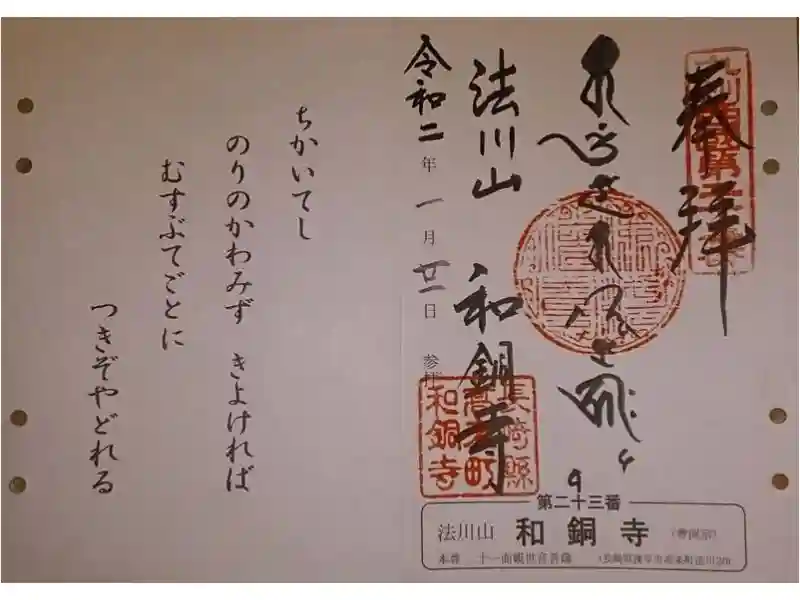 奉拝
法川山 和銅寺
令和二年一月廿一日 参拝
長崎縣
高来町
和銅寺
第二十三番
法川山 和銅寺 (曹洞宗)
本尊 十一面観世音菩薩
ちかいてし
のりのかわみず きよければ
むすぶてごとに
つきぞやどれる